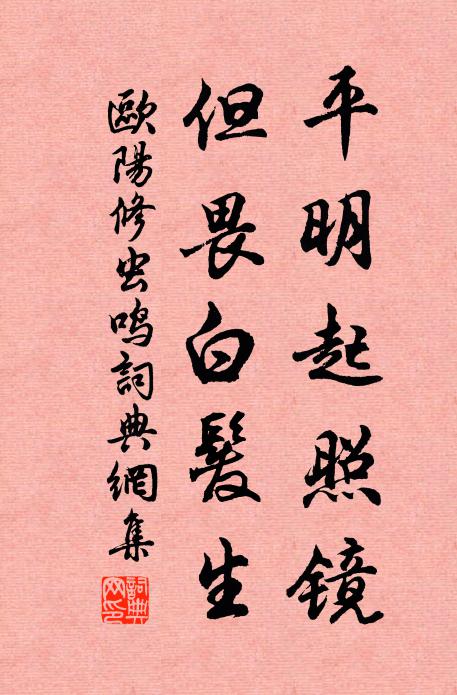 平明起照镜
但畏白髮生
歐陽修虫鸣詞典網集
詞典
网印